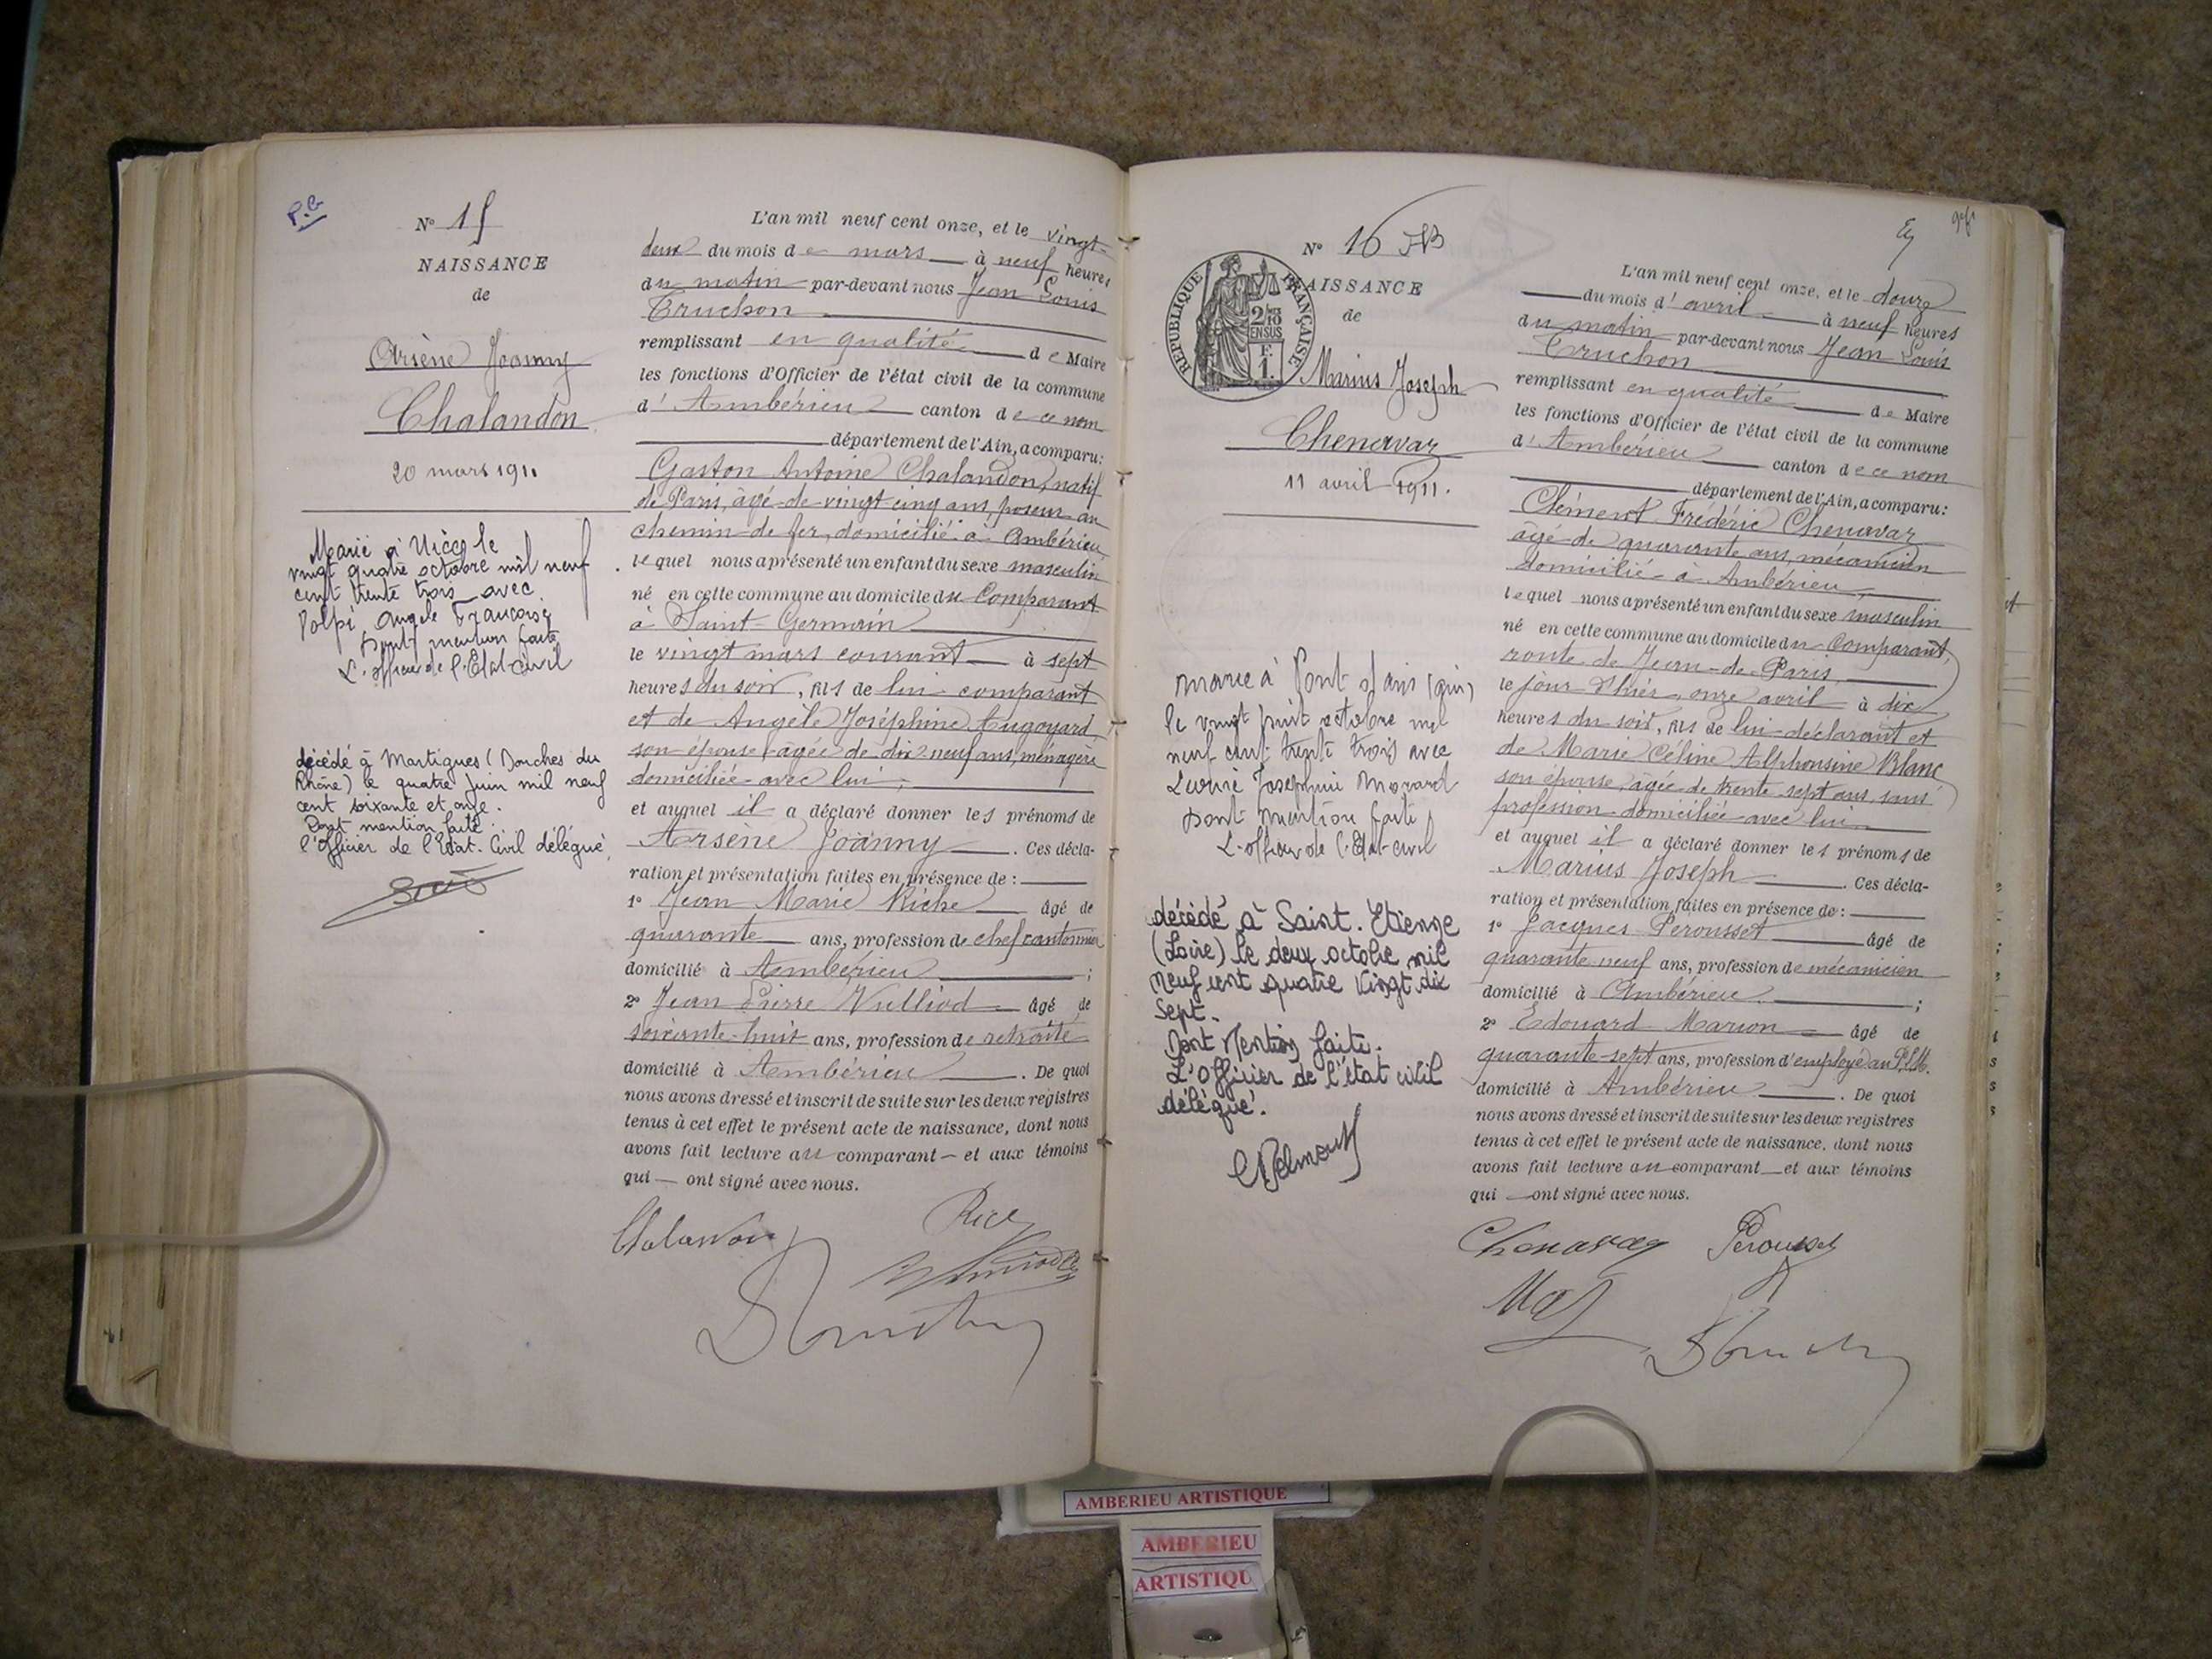 P.G
N° 15
NAISSANCE
de
Arsène Joanny
Chalandon
20 mars 1911
Marié à Nice le
vingt quatre octobre mil neuf
cent trente trois avec
Volpi, Angele Françoise
Dont mention faite
L'officier de l'Etat-Civil
décédé à Martigues (Bouches du
Rhône) le quatre Juin mil neuf
cent soixante et onze.
Dont mention faite.
l'Officier de l'Etat-Civil délégué,
L'an mil neuf cent onze, et le vingt-
deux du mois de mars à neuf heures
du matin par-devant nous Jean Louis
Truchon
remplissant en qualité de Maire
les fonctions d'Officier de l'état civil de la commune
d'Ambérieu canton de ce nom
département de l'Ain, a comparu:
Gaston Antoine Chalandon, natif
de Paris, âgé de vingt cinq ans, poseur au
chemin de fer, domicilié à Ambérieu
lequel nous a présenté un enfant du sexe masculin
né en cette commune au domicile du Comparant
à Saint-Germain
le vingt mars courant à sept
heures du soir, fils de lui comparant
et de Angèle Joséphine Augoyard
son épouse, âgée de dix neuf ans, ménagère
domiciliée avec lui;
et auquel il a déclaré donner les prénoms de
Arsène Joanny. Ces décla-
ration et présentation faites en présence de:
1° Jean Marie Riche âgé de
quarante ans, profession de chef cantonnier
domicilié à Ambérieu;
2° Jean Pierre Vulliod âgé de
soixante-huit ans, profession de retraité
domicilié à Ambérieu. De quoi
nous avons dressé et inscrit de suite sur les deux registres
tenus à cet effet le présent acte de naissance, dont nous
avons fait lecture au comparant et aux témoins
qui ont signé avec nous.
Chalandon
N° 16
NAISSANCE
de
REPUBLIQUE FRANÇAISE
2/10 EN SUS
F. 1.
Marius Joseph
Chenavaz
11 avril 1911.
Marié à Pont d'Ain (Ain)
le vingt huit octobre mil
neuf cent trente trois avec
Josephine
Dont mention faite,
L'officier de l'Etat-civil
décédé à Saint-Etienne
(Loire) le deux octobre mil
neuf cent quatre vingt dix
sept.
Dont Mention faite.
L'Officier de l'état civil
délégué.
L'an mil neuf cent onze, et le douze
du mois d'avril à neuf heures
du matin par-devant nous Jean Louis
Truchon
remplissant en qualité de Maire
les fonctions d'Officier de l'état civil de la commune
d'Ambérieu canton de ce nom
département de l'Ain, a comparu:
Clément Frédéric Chenavaz
âgé de quarante ans, mécanicien
domicilié à Ambérieu,
lequel nous a présenté un enfant du sexe masculin
né en cette commune au domicile du Comparant,
route de Jean-de-Paris
le jour d'hier, onze avril à dix
heures du soir, fils de lui déclarant et
de Marie Céline Alphonsine Blanc
son épouse, âgée de trente sept ans, sans
profession domiciliée avec lui
et auquel il a déclaré donner les prénoms de
Marius Joseph. Ces décla-
ration et présentation faites en présence de:
1° Jacques Perousset âgé de
quarante neuf ans, profession de mécanicien
domicilié à Ambérieu;
2° Edouard Marion âgé de
quarante-sept ans, profession d'employé au P.L.M.
domicilié à Ambérieu. De quoi
nous avons dressé et inscrit de suite sur les deux registres
tenus à cet effet le présent acte de naissance, dont nous
avons fait lecture au comparant et aux témoins
qui ont signé avec nous.
Chenavaz Perousset
AMBERIEU ARTISTIQUE
AMBERIEU
ARTISTIQU